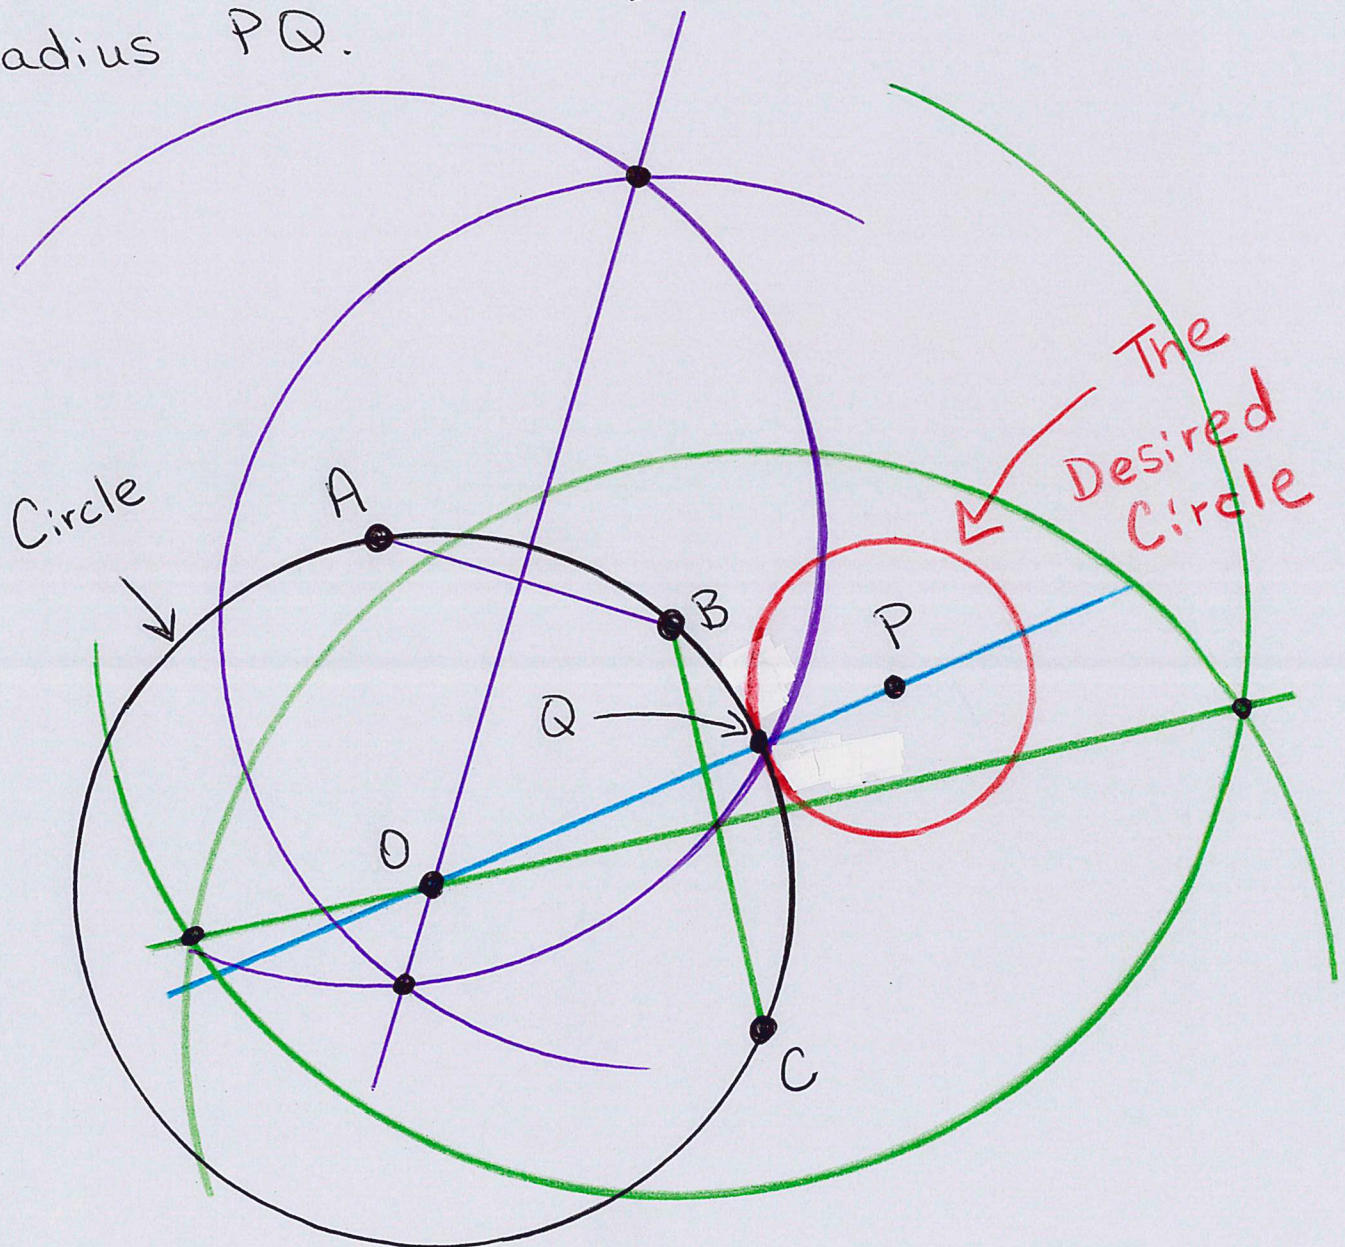 adius PQ.
The
Desired
Circle
Circle
A
B
P
Q
O
C